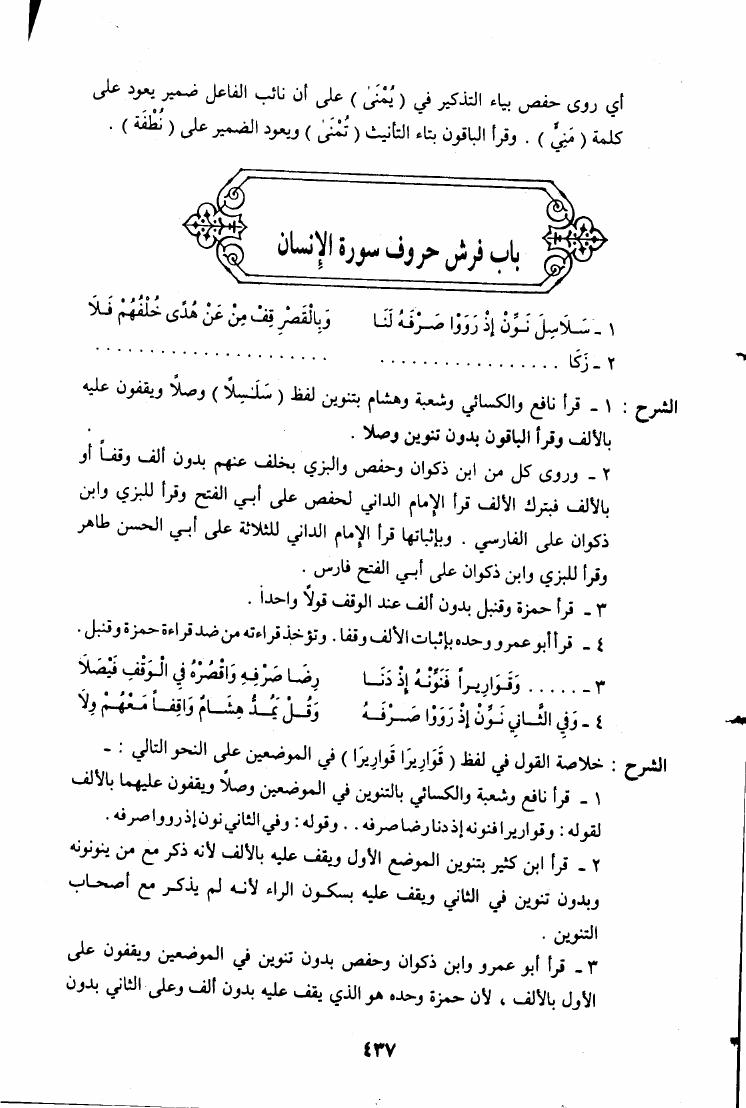 أي روى حفص بياء التذكير في ( يُمْنَىٰ ) على أن نائب الفاعل ضمير يعود على
كلمة ( مَنِيٍّ ) . وقرأ الباقون بتاء التأنيث ( تُمْنَىٰ ) ويعود الضمير على ( نُطْفَة ) .
باب فرش حروف سورة الإنسان
١ ـ سَـلَاسِلَ نَـوِّنْ إِذْ رَوَوْا صَـرْفَـهُ لَنَـا وَبِالْقَصْرِ قِفْ مِنْ عَنْ هُدًى خُلْفُهُمْ فَـلَا
٢ ـ زَكَا . . . . . . . . . . . . . . . . . . . . . . . . . . . . . . . . . . . . .
الشرح : ١ ـ قرأ نافع والكسائي وشعبة وهشام بتنوين لفظ ( سَلَـٰسِلًا ) وصلًا ويقفون عليه
بالألف وقرأ الباقون بدون تنوين وصلا .
٢ ـ وروى كل من ابن ذكوان وحفص والبزي بخلف عنهم بدون ألف وقفـاً أو
بالألف فبترك الألف قرأ الإمام الداني لحفص على أبـي الفتح وقرأ للبزي وابن
ذكوان على الفارسي . وبإثباتها قرأ الإمام الداني للثلاثة على أبـي الحسن طاهر
وقرأ للبزي وابن ذكوان على أبـي الفتح فارس .
٣ ـ قرأ حمزة وقنبل بدون ألف عند الوقف قولًا واحداً .
٤ ـ قرأ أبو عمرو وحده بإثبات الألف وقفا . وتؤخذ قراءته من ضد قراءة حمزة وقنبل .
٣ ـ . . . . . وَقَـوَارِيـراً فَنَوِّنْـهُ إِذْ دَنَـا رِضَـا صَرْفِـهِ وَاقْصُرْهُ فِي الْـوَقْفِ فَيْصَلَا
٤ ـ وَفِي الثَّـانِي نَـوِّنْ إِذْ رَوَوْا صَـرْفَـهُ وَقُـلْ يَمُـدُّ هِشَـامٌ وَاقِفـاً مَـعْهُمْ وِلَا
الشرح : خلاصة القول في لفظ ( قَوَارِيرَا قَوارِيرَا ) في الموضعين على النحو التالي : ـ
١ ـ قرأ نافع وشعبة والكسائي بالتنوين في الموضعين وصلًا ويقفون عليهما بالألف
لقوله : وقواريرا فنونه إذ دنا رضا صرفه . . وقوله : وفي الثاني نون إذ رووا صرفه .
٢ ـ قرأ ابن كثير بتنوين الموضع الأول ويقف عليه بالألف لأنه ذكر مع من ينونونه
وبدون تنوين في الثاني ويقف عليه بسكـون الراء لأنـه لم يذكـر مع أصحـاب
التنوين .
٣ ـ قرأ أبو عمرو وابن ذكوان وحفص بدون تنوين في الموضعين ويقفون على
الأول بالألف ، لأن حمزة وحده هو الذي يقف عليه بدون ألف وعلى الثاني بدون
٤٣٧